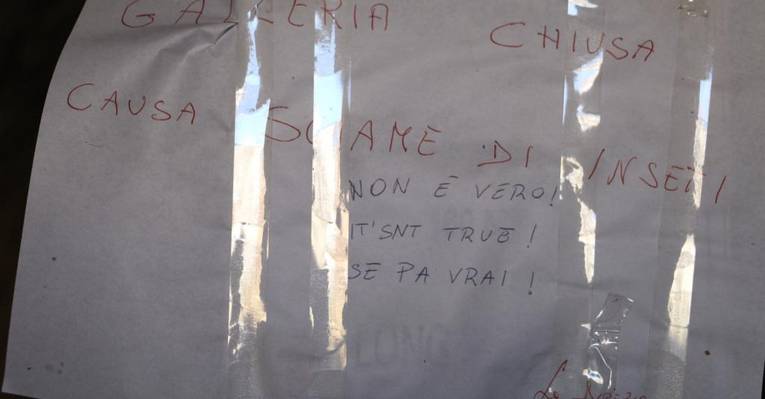 GALLERIA CHIUSA
CAUSA SCIAME DI INSETI
NON È VERO!
IT'SNT TRUE!
SE PA VRAI!
La